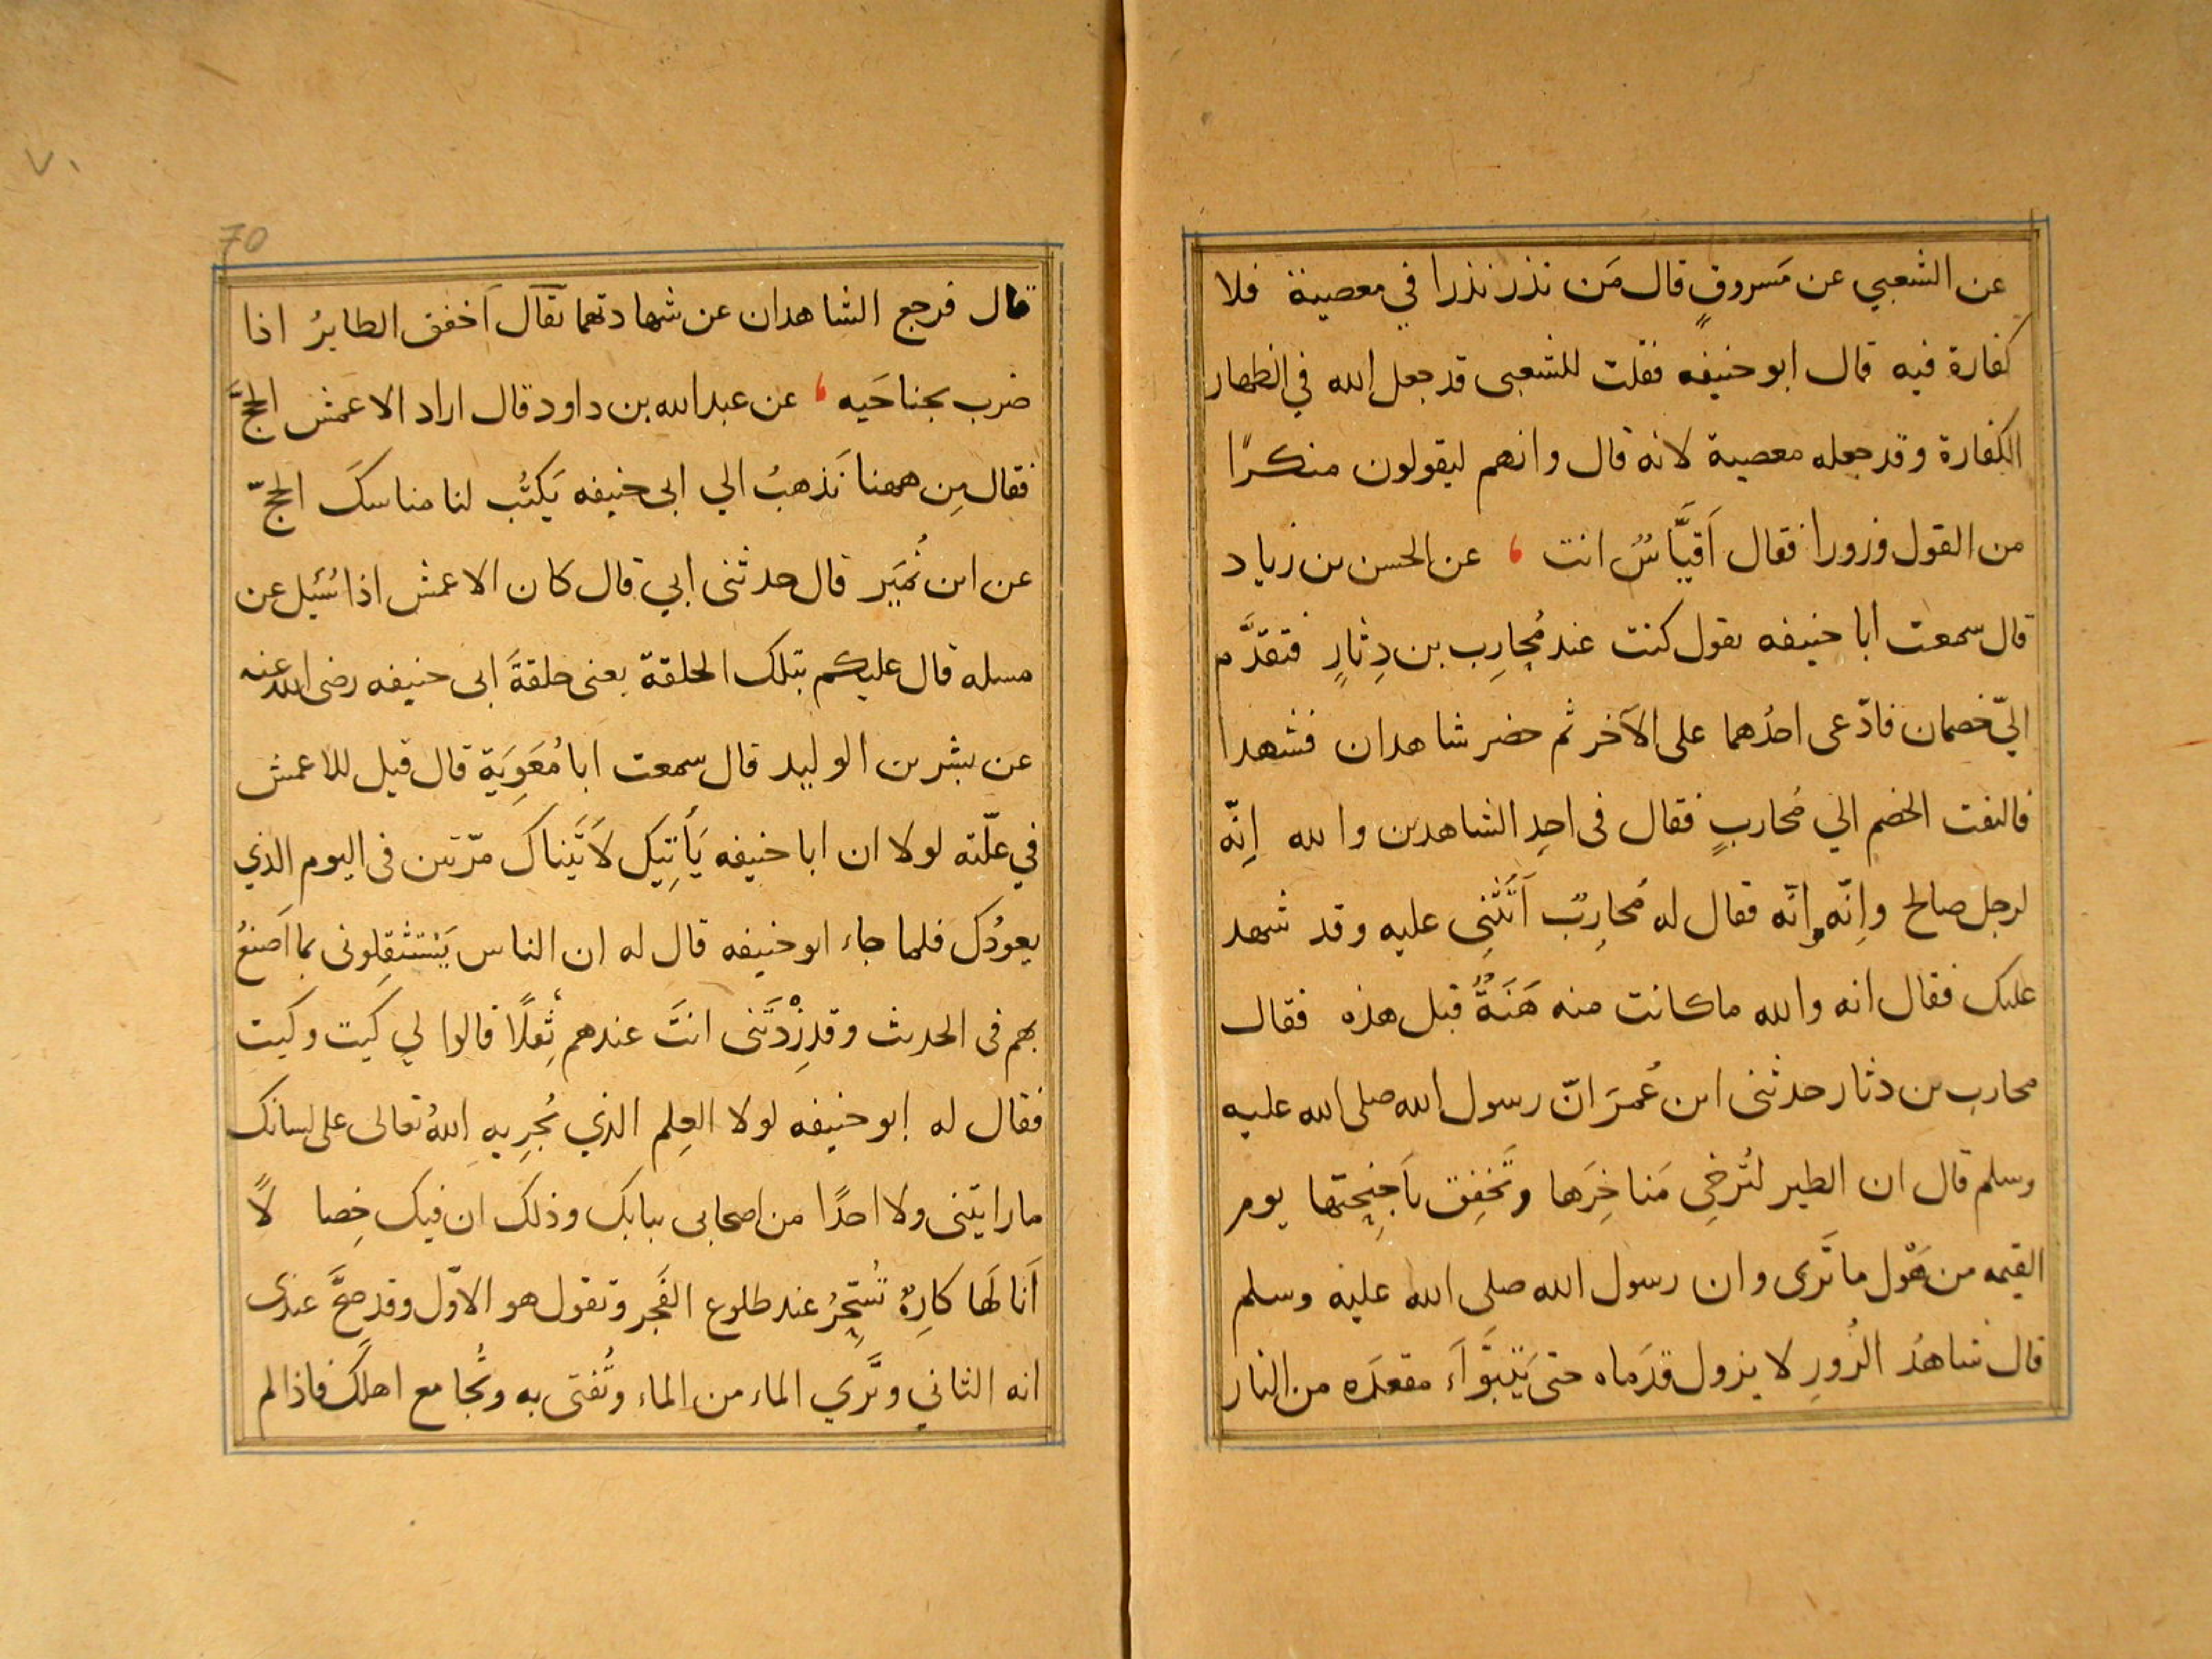 عن الشعبي عن مَسروقٍ قال مَن نذر نذرا في معصية فلا
كفارة فيه قال ابو حنيفه فقلت للشعبى قد جعل الله في الظهار
الكفارة وقد جعله معصية لانه قال وانهم ليقولون منكرًا
من القول وزورا فقال اَقَيَّاسٌ انت ، عن الحسن بن زياد
قال سمعت ابا حنيفه يقول كنت عند مُحارِب بن دِثارٍ فتقدَّم
اليّ خصمان فادّعى احدُهما على الآخر ثم حضر شاهدان فشهدا
فالتفت الخصم الي مُحاربٍ فقال فى احدِ الشاهدين والله اِنّه
لرجل صالح واِنّه وانّه فقال له مُحارِبٌ اَتُثْنِى عليه وقد شهد
عليك فقال انه والله ما كانت منه هَنَةٌ قبل هذه فقال
محارب بن دثار حدثنى ابن عُمَرَ انّ رسول الله صلى الله عليه
وسلم قال ان الطير لتُرخِى مَناخِرَها وتَخفِق باَجنِحتها يوم
القيمه من هَوْل ما تَرى وان رسول الله صلى الله عليه وسلم
قال شاهدُ الزُورِ لا يزول قدَماه حتى يَتَبَوَّاَء مقعدَه من النار
٧٠
70
قال فرجع الشاهدان عن شهادتهما يقال اَخفق الطايرُ اذا
ضرب بجناحَيه ، عن عبد الله بن داود قال اراد الاعمش الحجَّ
فقال مِن ههنا نَذهبُ الي ابى حنيفه يَكتُب لنا مناسكَ الحجّ
عن ابن نُمَير قال حدثنى ابي قال كان الاعمش اذا سُئِل عن
مسله قال عليكم بتلك الحلقة يعنى حلقةَ ابى حنيفه رضى الله عنه
عن بشر بن الوليد قال سمعت ابا مُعَوِيَة قال قيل للاعمش
في علّته لولا ان ابا حنيفه يَأتِيك لاَتَيناك مرّتين فى اليوم الذي
يعودُك فلما جاء ابو حنيفه قال له ان الناس يَستثقِلونى بما اَصنعُ
بهم فى الحديث وقد زِدْتَنى انتَ عندهم ثِقلًا قالوا لي كيت وكيت
فقال له ابو حنيفه لولا العِلم الذي يُجرِيهِ اللهُ تعالى على لسانك
ما رايتنى ولا احدًا من اصحابى ببابك وذلك ان فيك خِصالًا
اَنا لَها كارِهٌ تُسَحِّرُ عند طلوع الفَجر وتقول هو الاوّل وقد صحَّ عندى
انه الثاني وتَري الماء من الماء وتُفتى به وتُجامع اهلَك فاذا لم